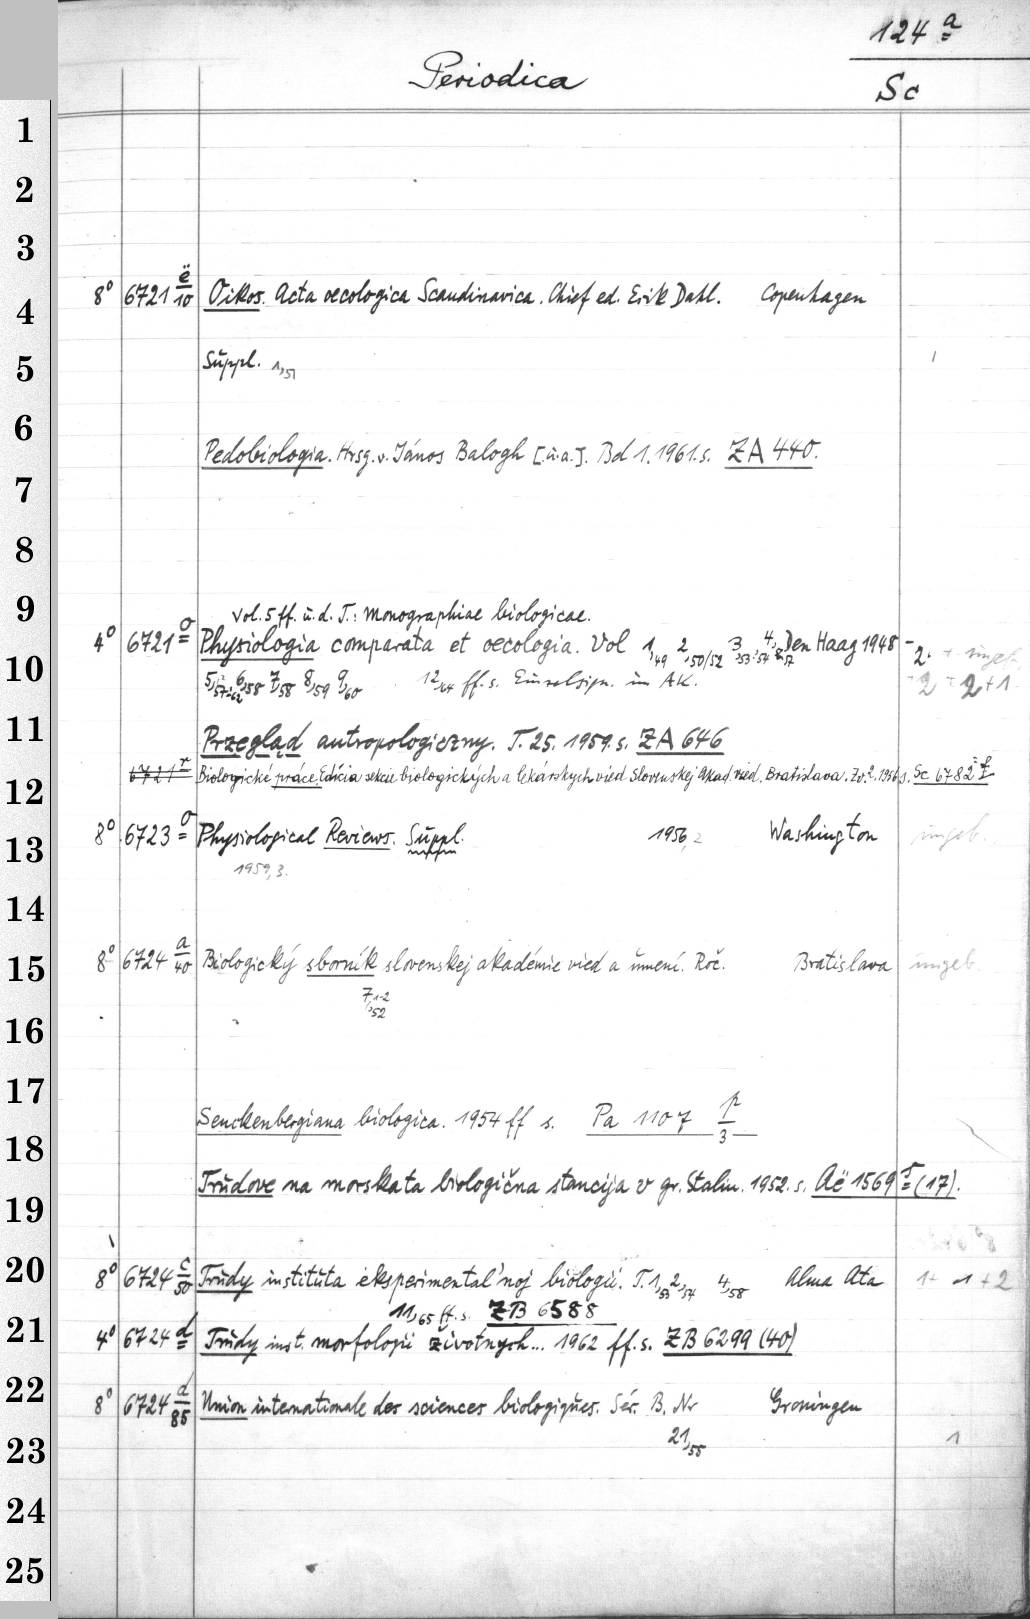 124 a
Periodica
Sc
1
2
3
4
5
6
7
8
9
10
11
12
13
14
15
16
17
18
19
20
21
22
23
24
25
8° 6721 ë/10 Oikos. Acta oecologica Scandinavica. Chief ed. Erik Dahl. Copenhagen
Suppl. 1,51 1
Pedobiologia. Hrsg. v. János Balogh [u.a.]. Bd 1.1961.s. ZA 440.
Vol. 5 ff. u. d. T.: Monographiae biologicae.
4° 6721 o Physiologia comparata et oecologia. Vol 1,49 2,50/52 3,53-54 4, Den Haag 1948-
5,57-62 6,58 7,58 8,59 9,60 12,64 ff. s. Einzelsign. im AK.
Przegląd antropologiczny. T. 25. 1959. s. ZA 646
6721 r Biologické práce. Edícia sekcie biologických a lekárskych vied Slovenskej Akad. vied. Bratislava. Zv. 2. 1956 s. Sc 6782
8° 6723 o Physiological Reviews. Suppl. 1956,2 Washington ungeb.
1959,3.
8° 6724 a/40 Biologický sborník slovenskej akadémie vied a umení. Roč. Bratislava ungeb
7,1-2,52
Senckenbergiana biologica. 1954 ff s. Pa 1107 p/3
Trudove na morskata biologična stancija v gr. Stalin. 1952. s. Aë 1569 r (17).
8° 6724 c/50 Trudy instituta ėksperimental'noj biologii. T. 1,53 2,54 4,58 Alma Ata 1+ 1+2
11,65 ff. s. ZB 6588
4° 6724 d Trudy inst. morfologii životnych... 1962 ff. s. ZB 6299 (40)
8° 6724 d/85 Union internationale des sciences biologiques. Sér. B. Nr Groningen
21,55 1